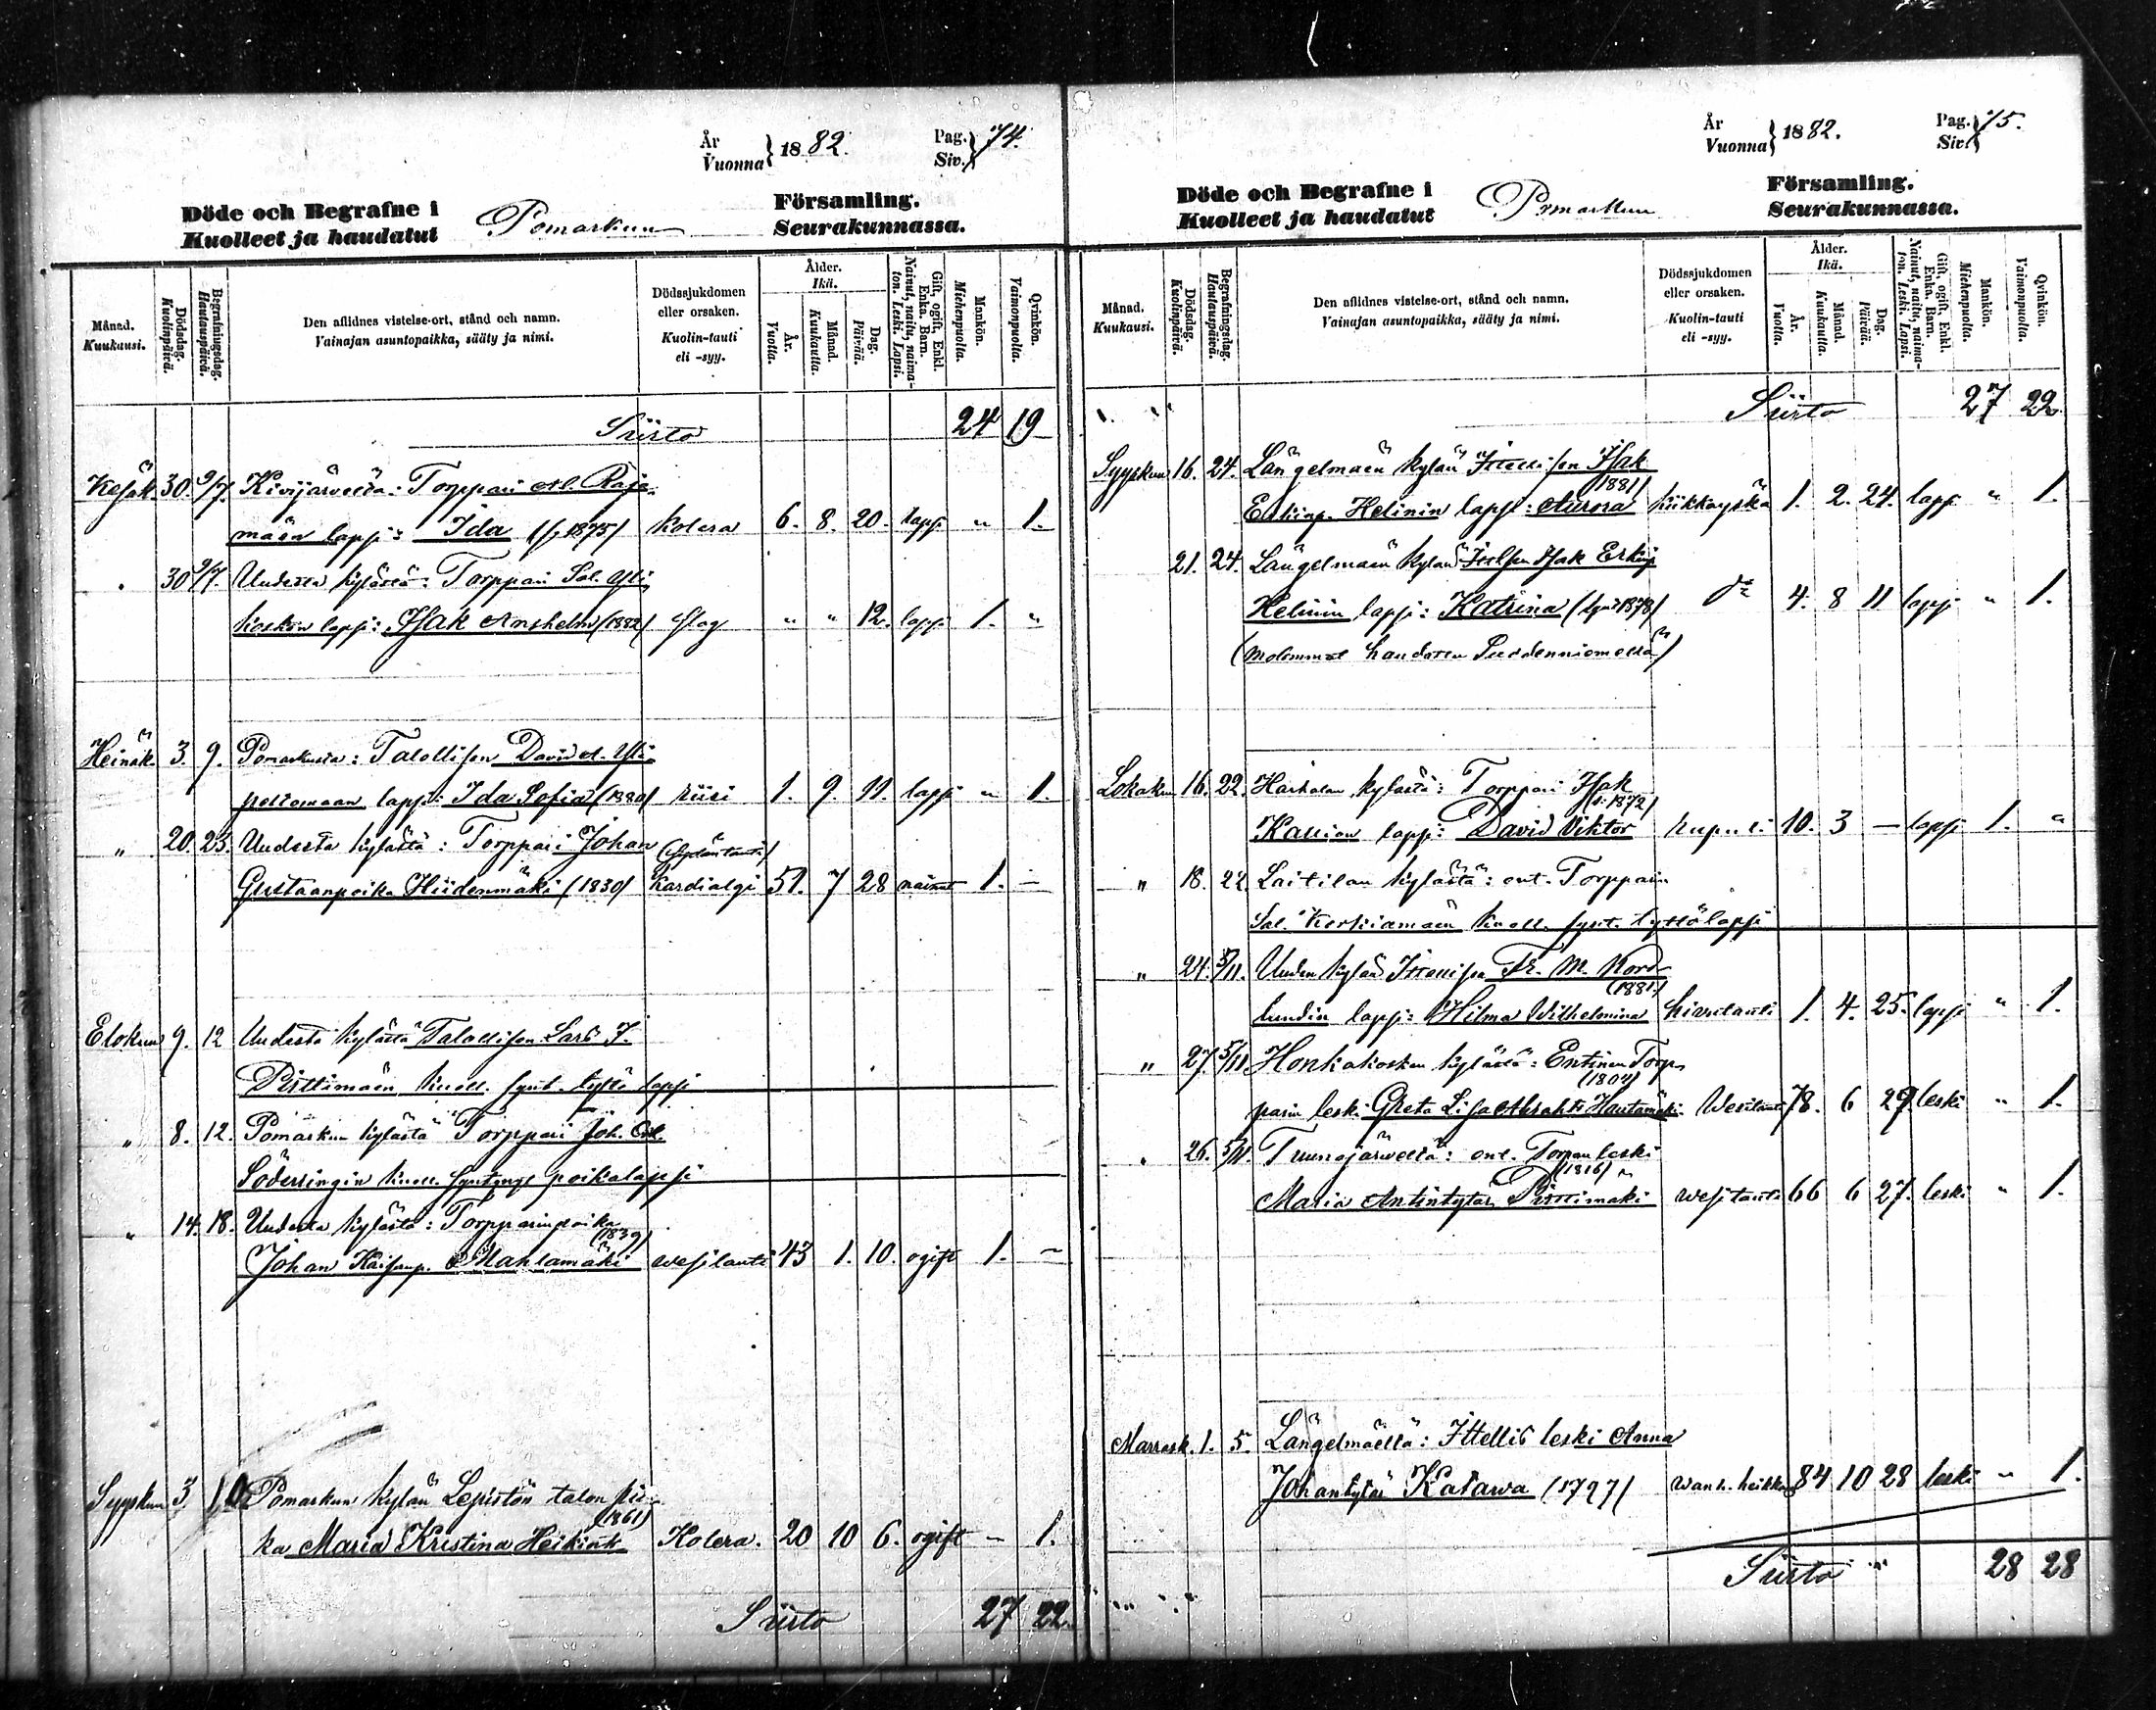 År
Vuonna } 1882. Pag.
Siv. } 74.
Döde och Begrafne i Pomarkun Församling.
Kuolleet ja haudatut Seurakunnassa.
Månad.
Kuukausi.
Dödsdag.
Kuolinpäivä.
Begrafningsdag.
Hautauspäivä.
Den aflidnes vistelse-ort, stånd och namn.
Vainajan asuntopaikka, sääty ja nimi.
Dödssjukdomen
eller orsaken.
Kuolin-tauti
eli -syy.
Ålder.
Ikä.
År.
Vuotta.
Månad.
Kuukautta.
Dag.
Päivää.
Gift, ogift, Enkl.
Enka. Barn.
Nainut, naitu, naima-
ton. Leski. Lapsi.
Mankön.
Miehenpuolta.
Qvinkön.
Vaimonpuolta.
Siirto 24 19
Kesäk. 30. 9/7. Kivijärveltä: Torppari Raja-
mäen lapsi: Ida (s. 1875) Kolera 6. 8. 20. lapsi " 1.
" 30 9/7. Uudesta kylästä: Torppari Sal. Yli
kosken lapsi: Isak Anshelm (1882) slag " " 12. lapsi 1. "
Heinäk. 3. 9. Pomarkusta: Talollisen David Yli-
peltomaan lapsi: Ida Sofia (1880) riisi 1. 9. 11. lapsi " 1.
" 20. 23. Uudesta kylästä: Torppari Johan
Gustaanpoika Hiidenmäki (1830) Kardialgi 51. 7 28 nainut 1. —
Elokuu 9. 12 Uudesta kylästä Talollisen Lars J.
Pirttimäen kuoll. synt. tyttö lapsi
" 8. 12. Pomarkun kylästä Torppari Joh.
Söderringin kuoll. syntynyt poikalapsi
" 14. 18. Uudesta kylästä: Torpparinpoika
(1839)
Johan Kaisanp. Mahlamäki vesitauti 43 1. 10. ogift 1. —
Syyskuu 3. 10 Pomarkun kylän Lepistön talon pii-
(1861)
ka Maria Kristina Heikint. Kolera. 20 10 6. ogift — 1.
Siirto 27 22.
År
Vuonna } 1882. Pag.
Siv. } 75.
Döde och Begrafne i Pomarkun Församling.
Kuolleet ja haudatut Seurakunnassa.
Månad.
Kuukausi.
Dödsdag.
Kuolinpäivä.
Begrafningsdag.
Hautauspäivä.
Den aflidnes vistelse-ort, stånd och namn.
Vainajan asuntopaikka, sääty ja nimi.
Dödssjukdomen
eller orsaken.
Kuolin-tauti
eli -syy.
Ålder.
Ikä.
År.
Vuotta.
Månad.
Kuukautta.
Dag.
Päivää.
Gift, ogift, Enkl.
Enka. Barn.
Nainut, naitu, naima-
ton. Leski. Lapsi.
Mankön.
Miehenpuolta.
Qvinkön.
Vaimonpuolta.
Siirto 27 22
Syyskuu 16. 24. Längelmäen kylän Itsellisen Isak
(1881)
Erkinp. Helinin lapsi: Aurora hiikkayskä 1. 2. 24. lapsi " 1.
21. 24. Längelmäen kylän Itsellsen Isak Erkinp
Helinin lapsi: Katrina (synt 1878) do 4. 8 11 lapsi " 1.
(molemmat haudattu)
Lokakuu 16. 22. Harhalan kylästä: Torppari Isak
(s. 1872)
Kallion lapsi: David Viktor rupuli 10. 3 — lapsi 1. "
" 18. 22. Laitilan kylästä: ent. Torpparin
Sal. Korkiamäen kuoll. synt. tyttölapsi
" 24. 5/11. Uuden kylän Itsellisen Fr. M. Nord-
(1881)
lundin lapsi: Hilma Wilhelmina 1. 4. 25. lapsi " 1.
" 27 5/11 Honkakosken kylästä: Entinen Torp-
(1804)
parin leski Greta Lisa Abrah. Hautamäki. Wesitauti 78. 6 29. leski " 1.
" 26. 5/11. Tuunajärveltä: ent. Torpan leski
(1816)
Maria Antintytär Pirttimäki vesitauti 66 6 27. leski " 1.
Marrask. 1. 5. Längelmäellä: Ittellis leski Anna
Johantytär Katawa (1797) wanh. heikkous 84 10 28 leski " 1.
Siirto 28 28